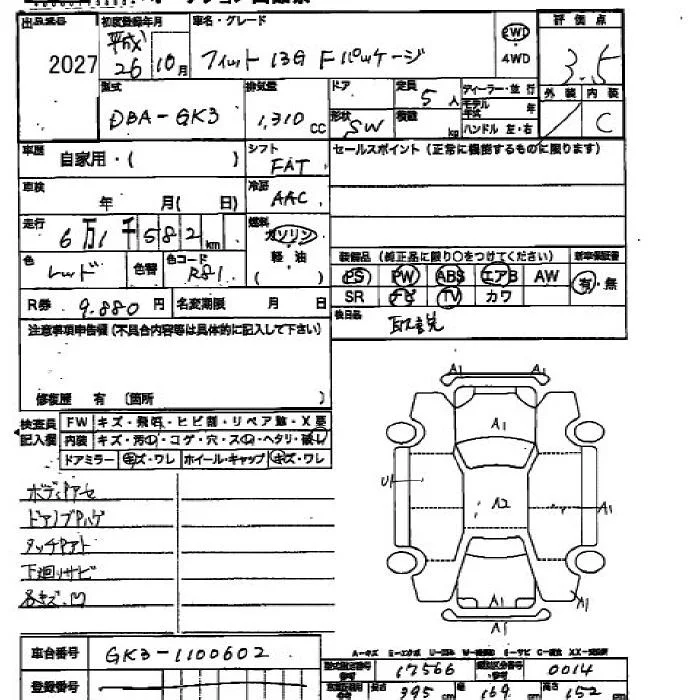 出品番号 初度登録年月 車名・グレード 評価点
2027 平成26 10月 フィット 13G Fパッケージ 2WD 3.5
4WD
型式 排気量 ドア 定員 5人 ディーラー・並行 外装 内装
DBA-GK3 1,310cc 形状 SW 積載 kg モデル年式 年 C
ハンドル 左・右
車歴 自家用・( ) シフト FAT セールスポイント(正常に機能するものに限ります)
車検 年 月( 日) 冷房 AAC
走行 6万1千582km 燃料 ガソリン
軽・油
( )
色 レッド 色替 色コード R81 装備品(純正品に限り○をつけてください) 新車保証書
PS PW ABS エアB AW 有・無
R券 9.880円 名変期限 月 日 SR ナビ TV カワ
注意事項申告欄(不具合内容等は具体的に記入して下さい) 後日品 取説
修復歴 有 (箇所 )
検査員記入欄 FW キズ・飛石・ヒビ割・リペア跡・X要
内装 キズ・汚れ・コゲ・穴・スレ・ヘタリ・破レ
ドアミラー キズ・ワレ ホイール・キャップ キズ・ワレ
A1 A1
A1
U1 A2 A1
A1 A1
A1
ボディPアセ
ドアノブPハゲ
タッチPアト
下廻りサビ
各キズ.M
車台番号 GK3-1100602
A-キズ E-エクボ U-凹み W-補修跡 S-サビ C-腐食 XX-交換済
型式指定番号 17566 類別区分番号 0014
登録番号 長さ 395cm 幅 169cm 高さ 152cm